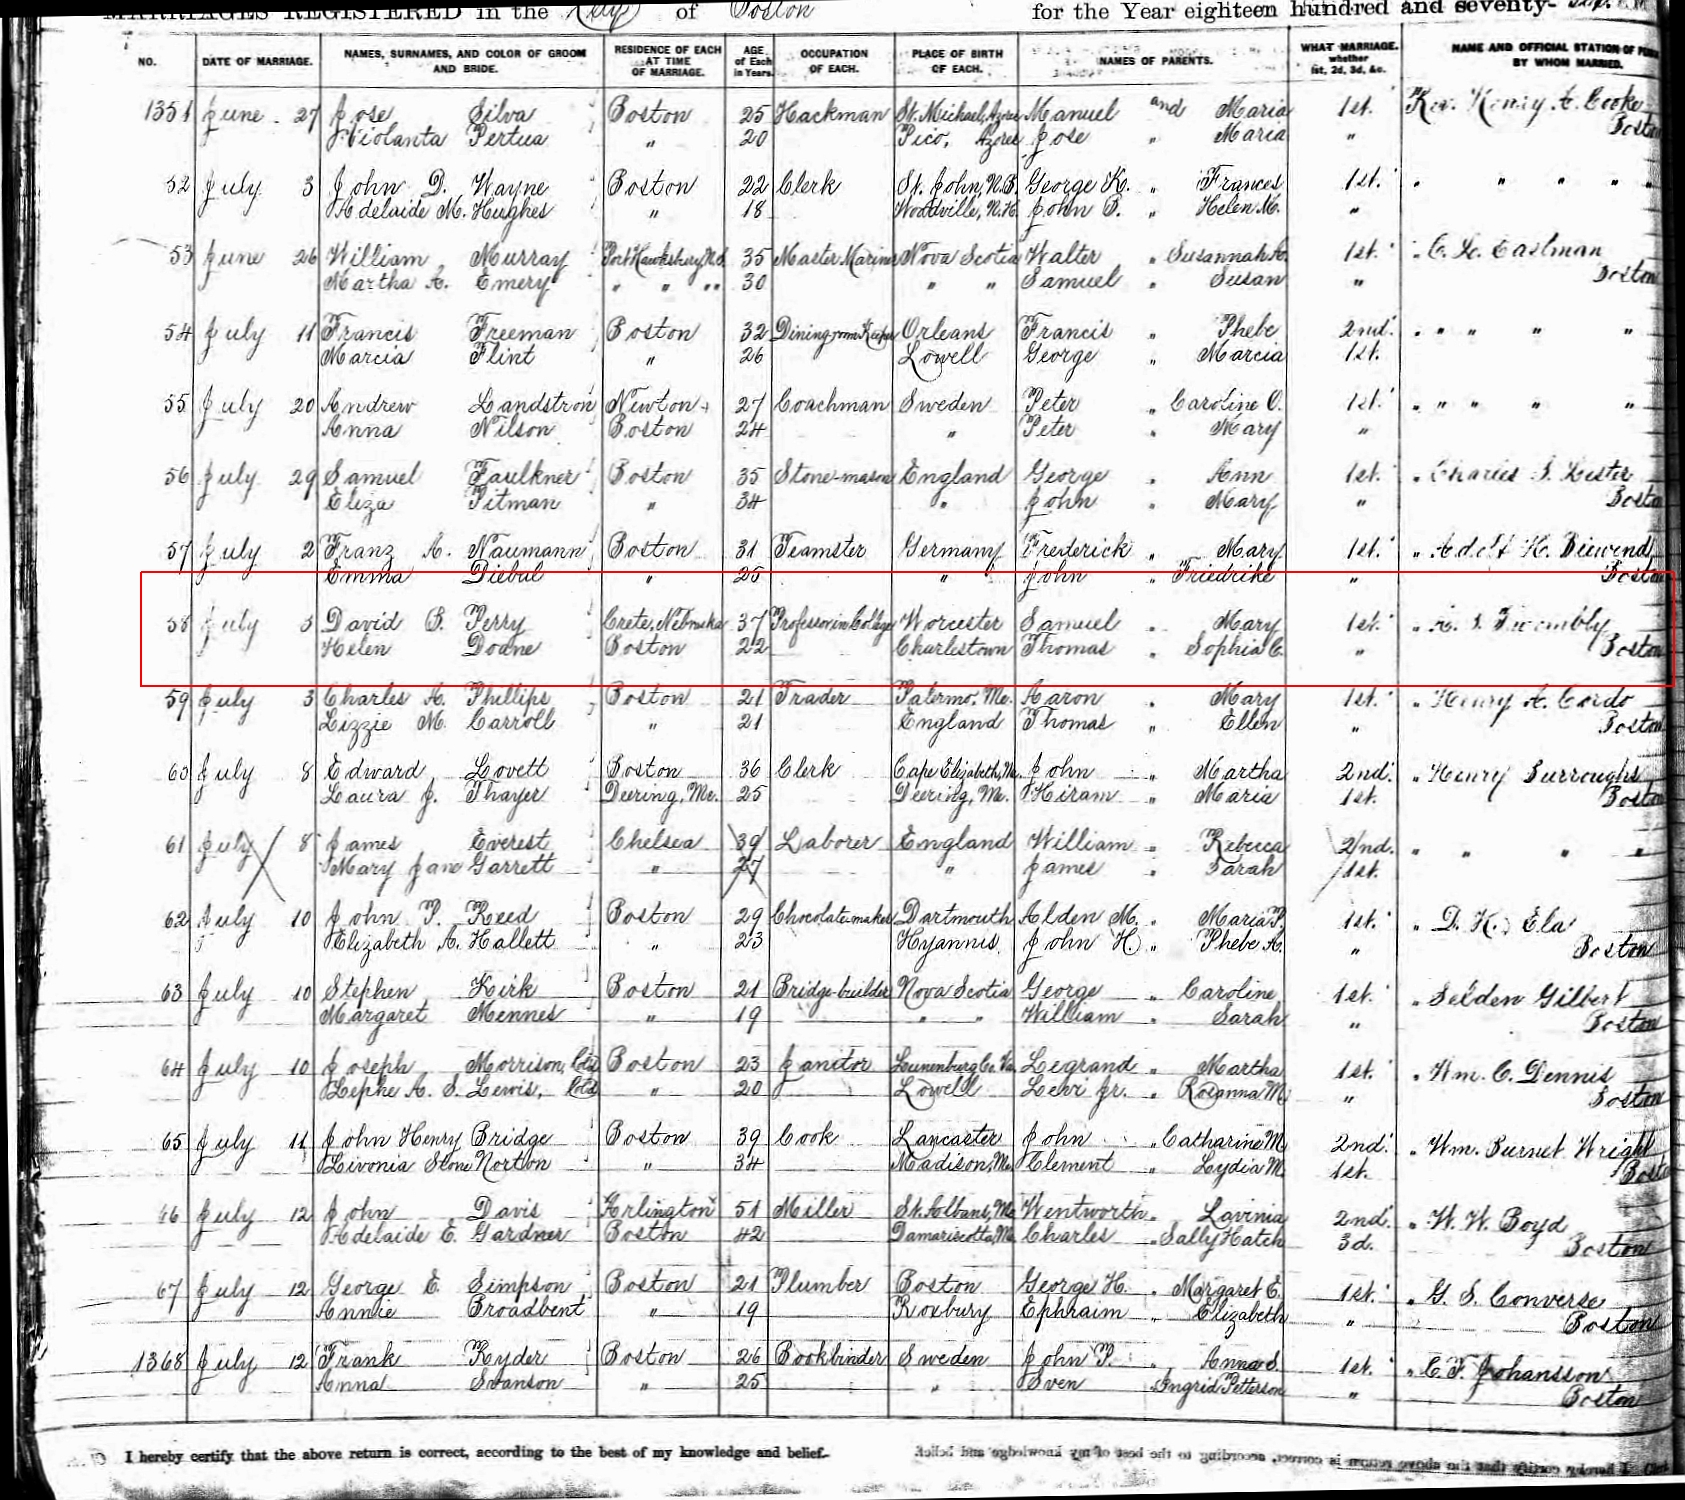 MARRIAGES REGISTERED in the City of Boston for the Year eighteen hundred and seventy-
NO. DATE OF MARRIAGE. NAMES, SURNAMES, AND COLOR OF GROOM AND BRIDE. RESIDENCE OF EACH AT TIME OF MARRIAGE. AGE of Each in Years. OCCUPATION OF EACH. PLACE OF BIRTH OF EACH. NAMES OF PARENTS. WHAT MARRIAGE. whether 1st, 2d, 3d, &c. NAME AND OFFICIAL STATION OF BY WHOM MARRIED.
1351 June 27 Jose Silva Boston 25 Hackman St. Michael, Azores Manuel and Maria 1st. Rev. Henry A. Cooke
Violanta Pertua " 20 Pico, Azores Jose " Maria " Boston
52 July 3 John D. Wayne Boston 22 Clerk St. John, N.B. George K. " Frances 1st. " " " "
Adelaide M. Hughes " 18 Woodville, N.H. John B. " Helen M. "
53 June 26 William Murray Port Hawksbury N.S. 35 Master Mariner Nova Scotia Walter " Susannah A. 1st. " C. L. Eastman
Martha A. Emery " " " 30 " " Samuel " Susan " Boston
54 July 11 Francis Freeman Boston 32 Dining-room Keeper Orleans Francis " Phebe 2nd. " " " " "
Marcia Flint " 26 Lowell George " Marcia 1st.
55 July 20 Andrew Landstron Newton 27 Coachman Sweden Peter " Caroline O. 1st. " " " " "
Anna Nilson Boston 24 " Peter " Mary "
56 July 29 Samuel Faulkner Boston 35 Stone-mason England George " Ann 1st. " Charles S. Lester
Eliza Pitman " 34 " John " Mary " Boston
57 July 2 Franz A. Naumann Boston 31 Teamster Germany Frederick " Mary 1st. " Adolf H. Biewend,
Emma Diebul " 25 " John " Friedrike " Boston
58 July 3 David B. Perry Crete, Nebraska 37 Professor in College Worcester Samuel " Mary 1st. " A. S. Twombly
Helen Doane Boston 22 Charlestown Thomas " Sophia C. " Boston
59 July 3 Charles A. Phillips Boston 21 Trader Palermo, Me. Aaron " Mary 1st. " Henry A. Cordo
Lizzie M. Carroll " 21 England Thomas " Ellen " Boston
60 July 8 Edward Lovett Boston 36 Clerk Cape Elizabeth, Me. John " Martha 2nd. " Henry Burroughs
Laura J. Thayer Deering, Me. 25 Deering, Me. Hiram " Maria 1st. Boston
61 July 8 James Everest Chelsea 39 Laborer England William " Rebecca 2nd. " " " "
Mary Jane Garrett " 27 " James " Sarah 1st.
62 July 10 John P. Reed Boston 29 Chocolate-maker Dartmouth Alden M. " Maria P. 1st. " D. K. Ela
Elizabeth A. Hallett " 23 Hyannis John H. " Phebe A. " Boston
63 July 10 Stephen Kirk Boston 21 Bridge-builder Nova Scotia George " Caroline 1st. " Selden Gilbert
Margaret Mennes " 19 " " William " Sarah " Boston
64 July 10 Joseph Morrison, Cold Boston 23 Janitor Lunenburg Co. Va. Legrand " Martha 1st. " Wm. C. Dennis
Zephe A. S. Lewis, Cold " 20 Lowell Levi Jr. " Rosanna M. " Boston
65 July 11 John Henry Bridge Boston 39 Cook Lancaster John " Catharine M. 2nd. " Wm. Burnet Wright
Livonia Stone Norton " 34 Madison, Me. Clement " Lydia M. 1st. Boston
66 July 12 John Davis Arlington 51 Miller St. Albans, Me. Wentworth " Lavinia 2nd. " W. W. Boyd
Adelaide E. Gardner Boston 42 Damariscotta, Me. Charles " Sally Hatch 3d. Boston
67 July 12 George E. Simpson Boston 21 Plumber Boston George H. " Margaret E. 1st. " G. S. Converse
Annie Broadbent " 19 Roxbury Ephraim " Elizabeth " Boston
1368 July 12 Frank Ryder Boston 26 Bookbinder Sweden John P. " Anna S. 1st. " C. F. Johansson
Anna Svanson " 25 " Sven " Ingrid Petterson " Boston
I hereby certify that the above return is correct, according to the best of my knowledge and belief.